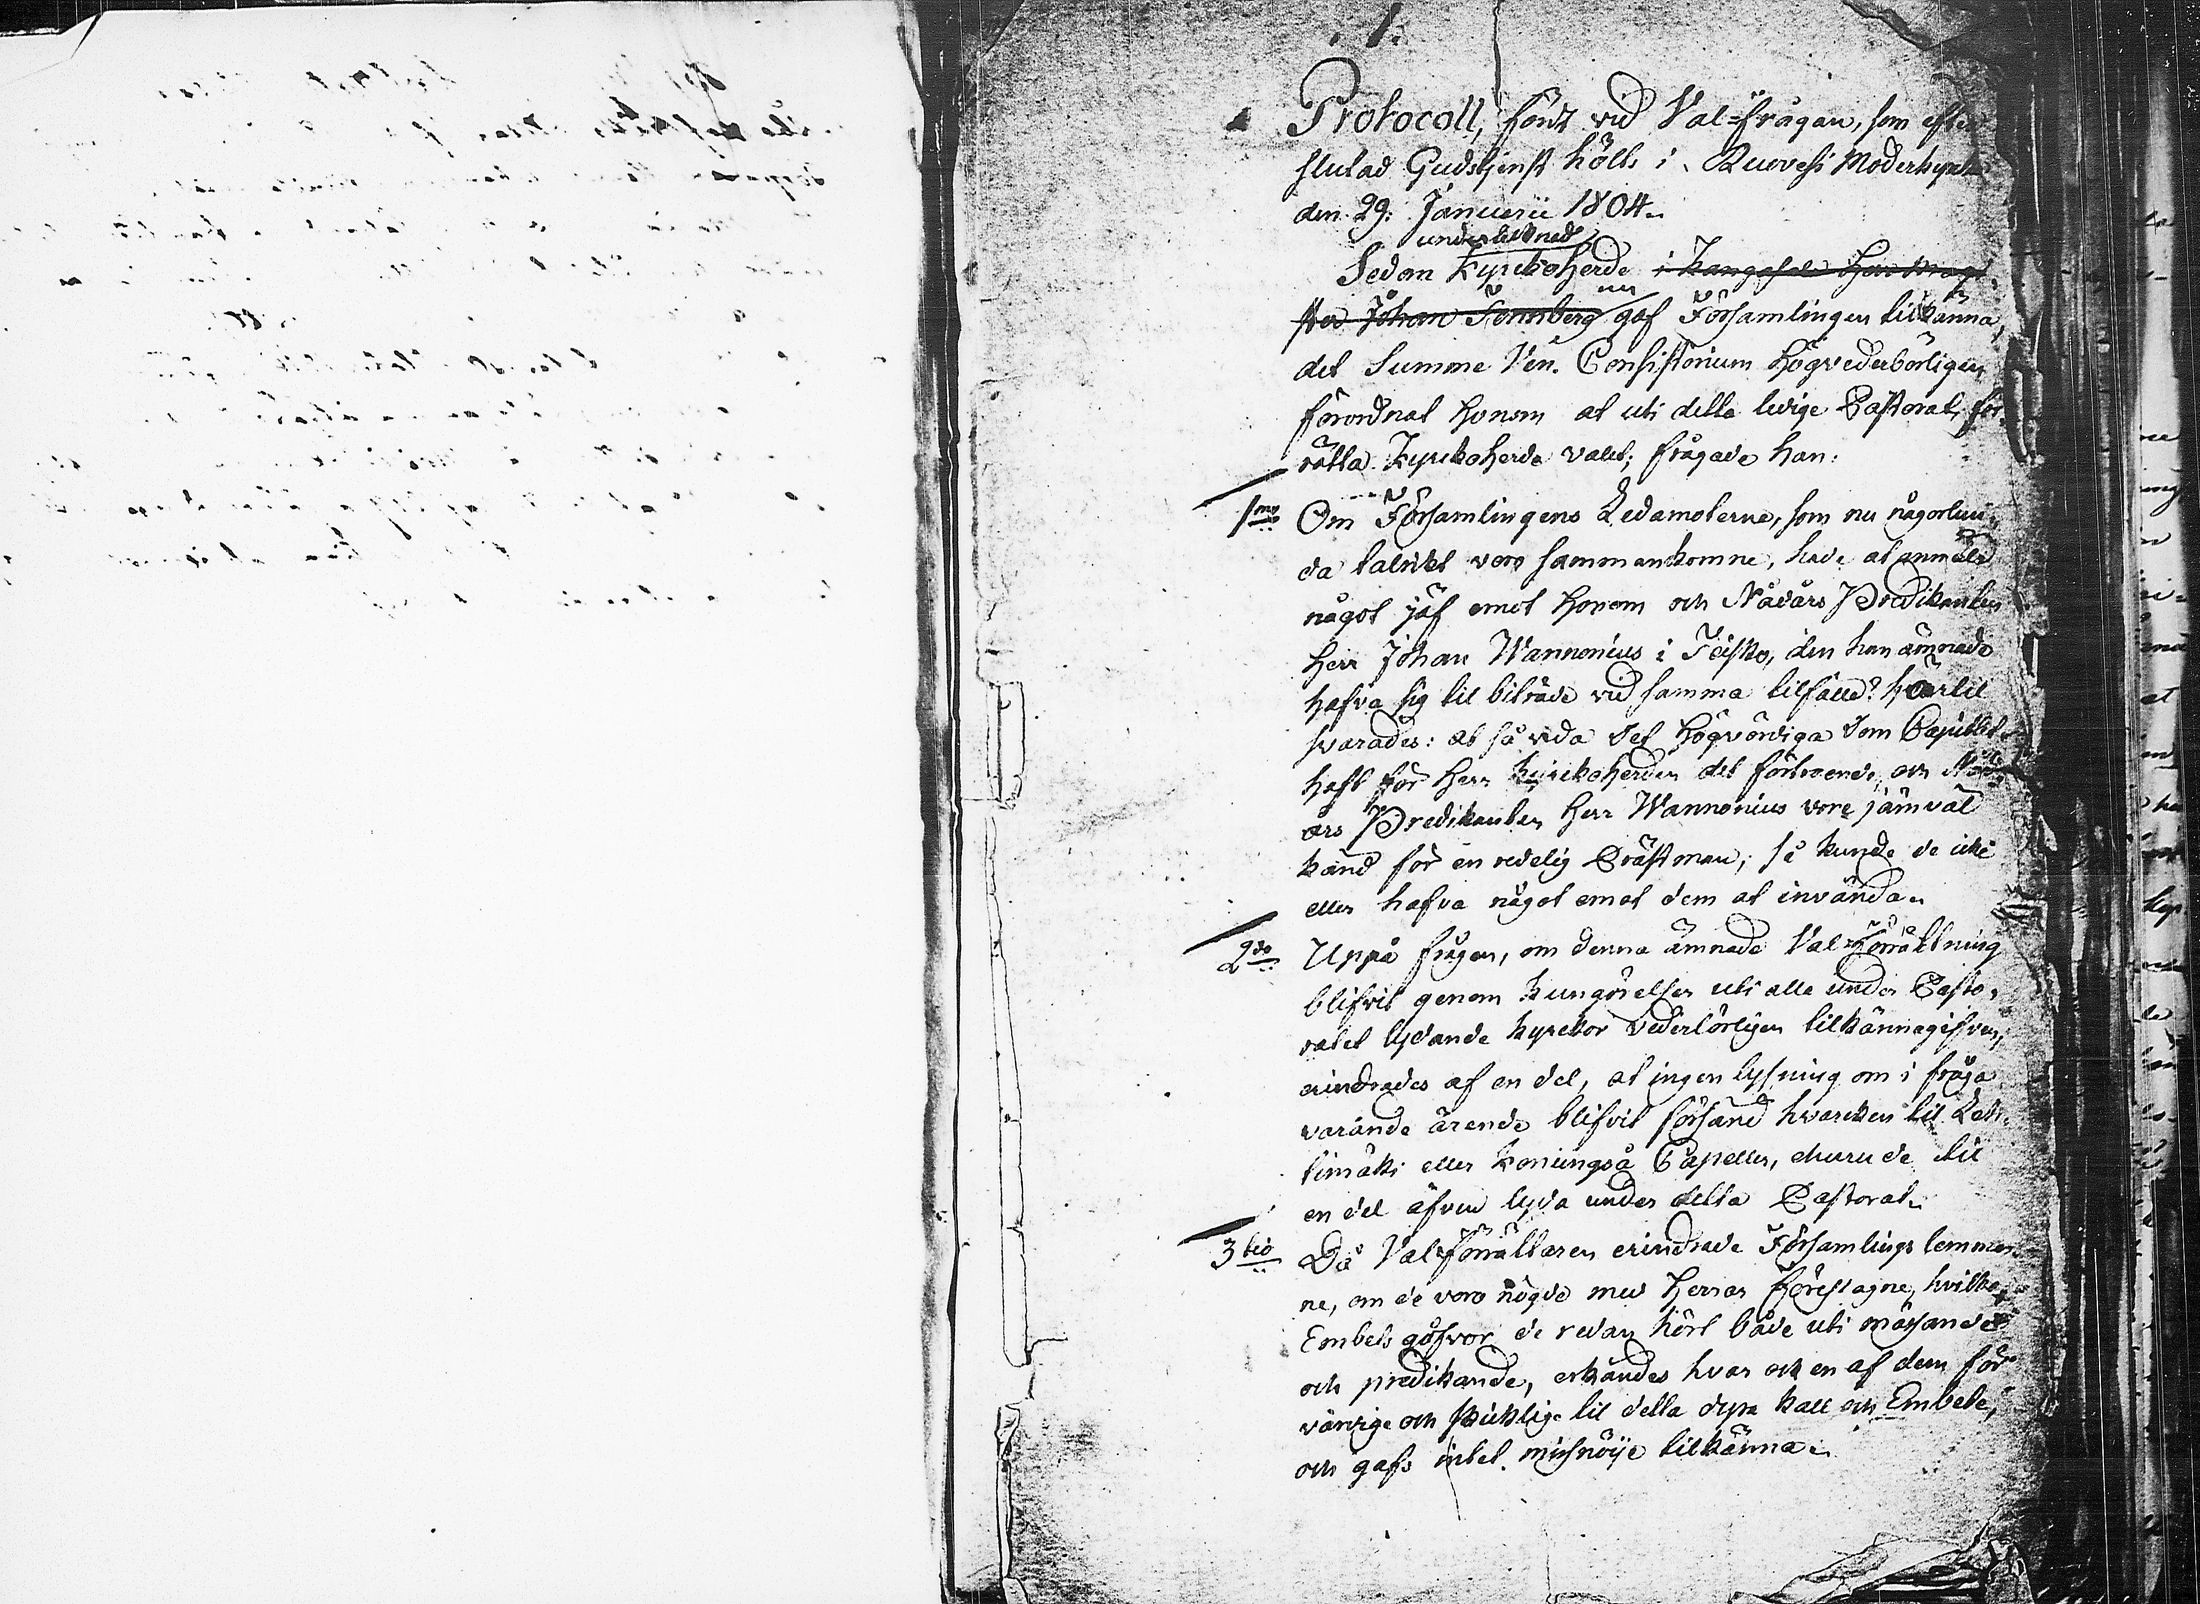 1.
Protocoll, fördt vid Val=frågan, som efter
slutad Gudstjenst hölls i Ruovesi Moderkyrka
den 29: Januarii 1804.
undertecknad
Sedan Kyrckoherde i Kangasala Herr Magi
ster Johan Fonnberg nu gaf Församlingen tilkänna,
det Summe Ven. Consistorium Högvederbörligen
förordnat honom at uti detta ledige Pastorat för
rätta Kyrckoherde valet; frågade han:
1mo Om Församlingens Ledamoterne, som nu någorlun
da talrikt voro sammankomne, hade at anmäla
något jäf emot honom och Nådårs Predikanten
Herr Johan Wannonius i Teisko, den han ämnade
hafva sig til biträde vid samma tilfälle? hvartil
svarades: at så vida Det Högvördiga Dom Capitlet
haft för Herr Kyrckoherden det förtroende, och Nåd
års Predikanten Herr Wannonius vore jämväl
känd för en redelig Prästman; så kunde de icke
eller hafva något emot dem at invända.
2do Uppå frågan, om denna ämnade Val=Förrättning
blifvit genom kungörelser uti alle under Pasto
ratet lydande kyrckor vederbörligen tilkännagifven,
erindrades af en del, at ingen lysning om i fråga
varande ärende blifvit försänd hvarcken til Kett
timäki eller Koningså Capeller, ehuru de til
en del äfven lyda under detta Pastorat.
3tio Då Valförrättaren erindrade Församlings lemmar
ne, om de voro nögde med Herrar Föreslagne, hvilkas
Embets gåfvor de redan hört både uti mässande
och predikande, erkändes hvar och en af dem för
värdige och skicklige til detta dyra kall och Embete,
och gafs intet misnöije tilkänna.